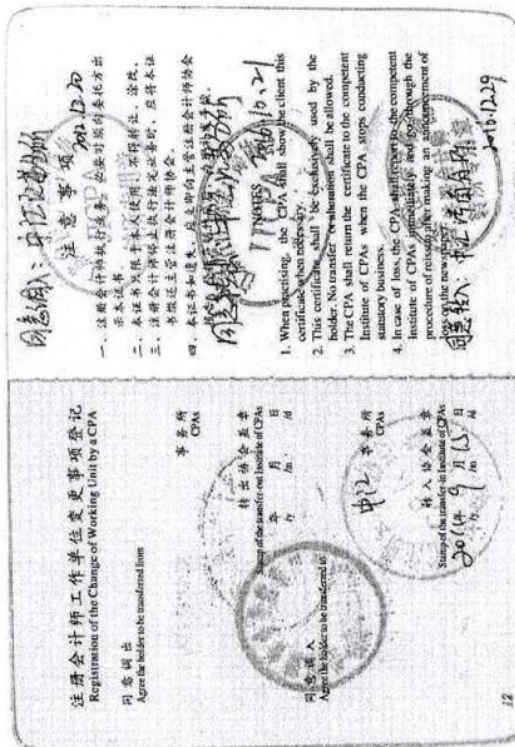 注册会计师工作单位变更事项登记
Registration of the Change of Working Unit by a CPA
同意调出
Agree the holder to be transferred from
事务所
CPAs
转出协会盖章
Stamp of the transfer-out Institute of CPAs
年 月 日
/y /m /d
同意调入
Agree the holder to be transferred to
中汇 事务所
CPAs
转入协会盖章
Stamp of the transfer-in Institute of CPAs
2011年9月15日
/y /m /d
12
同意调入:中汇
注意事项
一、注册会计师执行业务,必要时须向委托方出
示本证书。
二、本证书只限于本人使用,不得转让、涂改。
三、注册会计师停止执行法定业务时,应将本证
书缴还主管注册会计师协会。
四、本证书如遗失,应立即向主管注册会计师协会
NOTES
1. When practising, the CPA shall show the client this
certificate when necessary.
2. This certificate shall be exclusively used by the
holder. No transfer or alteration shall be allowed.
3. The CPA shall return the certificate to the competent
Institute of CPAs when the CPA stops conducting
statutory business.
4. In case of loss, the CPA shall report to the competent
Institute of CPAs immediately and go through the
procedure of reissue after making an announcement of
loss on the newspaper.
同意转入:中汇